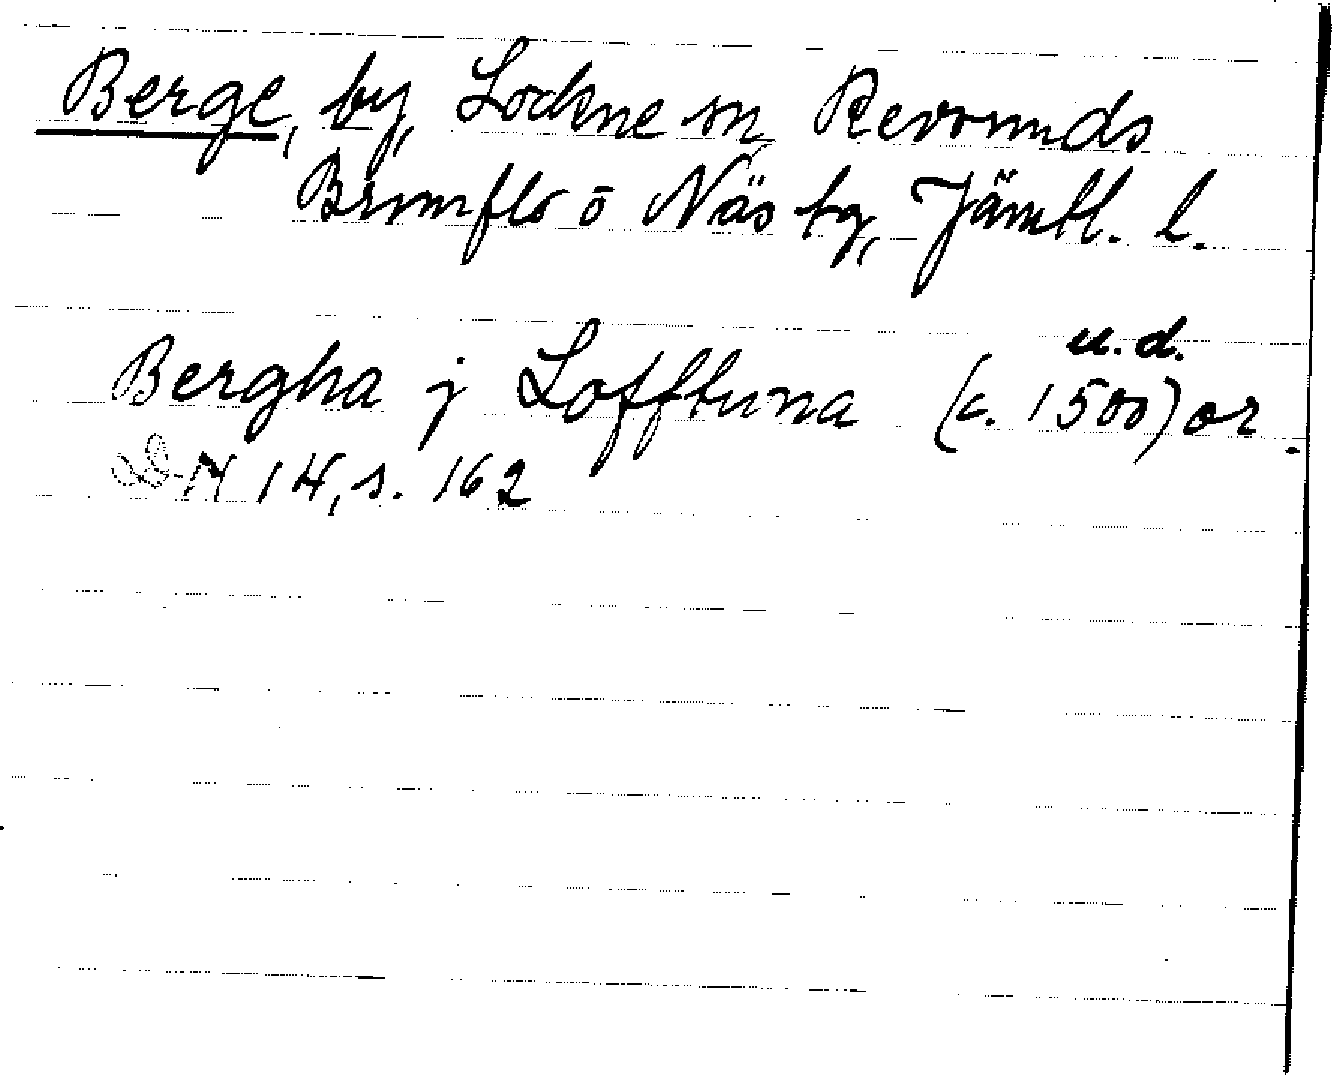 Berge, by, Lockne sn, Revsunds
Brunflo o Näs tg, Jämtl. l.
u.d.
Bergha j Lofftuna (c. 1500) or.
N 14, s. 162